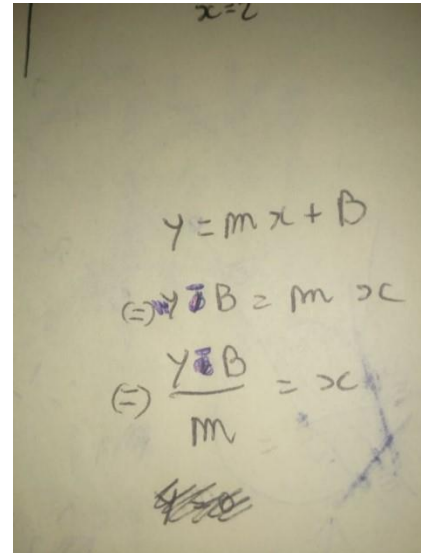 x=2
y = mx + B
(=) y - B = m x
(=) y - B / m = x